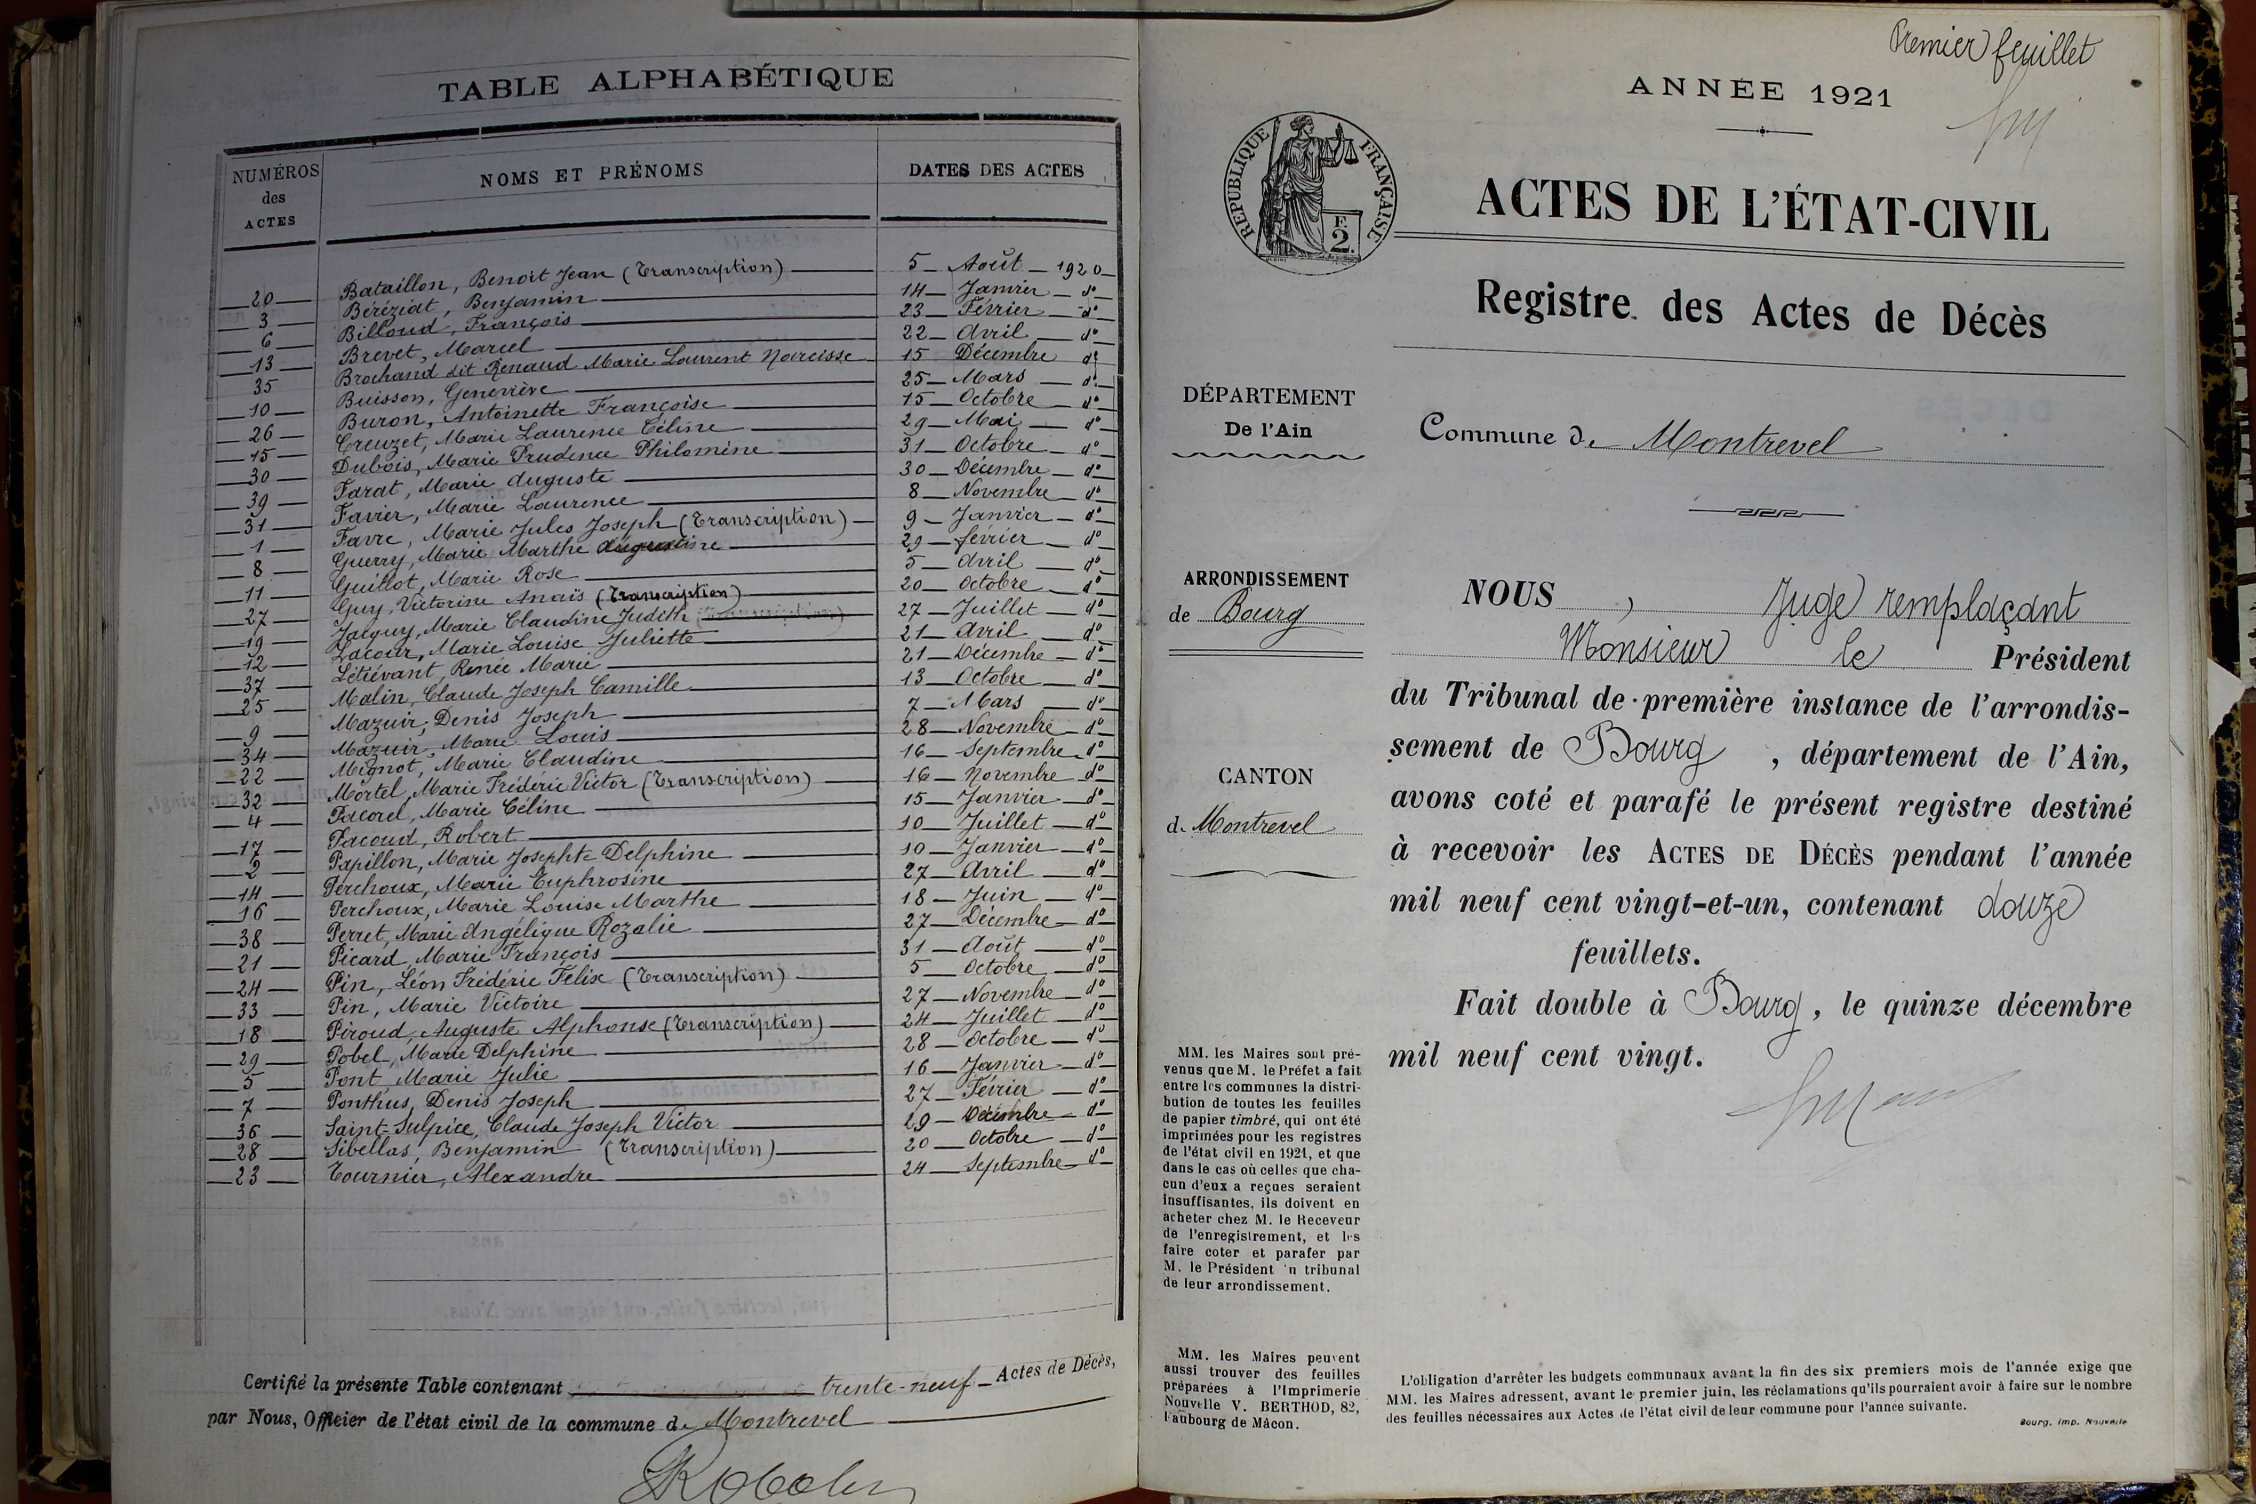 TABLE ALPHABÉTIQUE
NUMÉROS des ACTES NOMS ET PRÉNOMS DATES DES ACTES
20 Bataillon, Benoit Jean (Transcription) 5 Août 1920
3 Béréziat, Benjamin 14 Janvier do
6 Billoud, François 23 Février do
13 Brevet, Marcel 22 Avril do
35 Brochand dit Renaud Marie Laurent Narcisse 15 Décembre do
10 Buisson, Geneviève 25 Mars do
26 Buron, Antoinette Françoise 15 Octobre do
15 Creuzet, Marie Laurence Céline 29 Mai do
30 Dubois, Marie Prudence Philomène 31 Octobre do
39 Farat, Marie Auguste 30 Décembre do
31 Favier, Marie Laurence 8 Novembre do
1 Favre, Marie Jules Joseph (Transcription) 9 Janvier do
8 Guerry, Marie Marthe Augustine 29 février do
11 Guillot, Marie Rose 5 Avril do
27 Guy, Victorine Anaïs (Transcription) 20 Octobre do
19 Jacquy, Marie Claudine Judith 27 Juillet do
12 Lacour, Marie Louise Juliette 21 Avril do
37 Létiévant, Renée Marie 21 Décembre do
25 Malin, Claude Joseph Camille 13 Octobre do
9 Mazuir, Denis Joseph 7 Mars do
34 Mazuir, Marie Louis 28 Novembre do
22 Mignot, Marie Claudine 16 Septembre do
32 Mortel, Marie Frédéric Victor (Transcription) 16 Novembre do
4 Pacorel, Marie Céline 15 Janvier do
17 Pacoud, Robert 10 Juillet do
2 Papillon, Marie Josephte Delphine 10 Janvier do
14 Perchoux, Marie Euphrosine 27 Avril do
16 Perchoux, Marie Louise Marthe 18 Juin do
38 Perret, Marie Angélique Rozalie 27 Décembre do
21 Picard, Marie François 31 Août do
24 Pin, Léon Frédéric Félix (Transcription) 5 Octobre do
33 Pin, Marie Victoire 27 Novembre do
18 Piroud, Auguste Alphonse (Transcription) 24 Juillet do
29 Pobel, Marie Delphine 28 Octobre do
5 Pont, Marie Julie 16 Janvier do
7 Ponthus, Denis Joseph 27 Février do
36 Saint-Sulpice, Claude Joseph Victor 19 Décembre do
28 Sibellas, Benjamin (Transcription) 20 Octobre do
23 Tournier, Alexandre 24 Septembre do
Certifié la présente Table contenant trente-neuf Actes de Décès,
par Nous, Officier de l'état civil de la commune de Montrevel
Premier feuillet
ANNÉE 1921
RÉPUBLIQUE FRANÇAISE
F. 2.
ACTES DE L'ÉTAT-CIVIL
Registre des Actes de Décès
DÉPARTEMENT
De l'Ain
Commune de Montrevel
ARRONDISSEMENT
de Bourg
CANTON
de Montrevel
NOUS, Juge remplaçant
Monsieur le Président
du Tribunal de première instance de l'arrondis-
sement de Bourg, département de l'Ain,
avons coté et parafé le présent registre destiné
à recevoir les ACTES DE DÉCÈS pendant l'année
mil neuf cent vingt-et-un, contenant douze
feuillets.
Fait double à Bourg, le quinze décembre
mil neuf cent vingt.
MM. les Maires sont pré-
venus que M. le Préfet a fait
entre les communes la distri-
bution de toutes les feuilles
de papier timbré, qui ont été
imprimées pour les registres
de l'état civil en 1921, et que
dans le cas où celles que cha-
cun d'eux a reçues seraient
insuffisantes, ils doivent en
acheter chez M. le Receveur
de l'enregistrement, et les
faire coter et parafer par
M. le Président du tribunal
de leur arrondissement.
MM. les Maires peuvent
aussi trouver des feuilles
préparées à l'Imprimerie
Nouvelle V. BERTHOD, 82,
Faubourg de Mâcon.
L'obligation d'arrêter les budgets communaux avant la fin des six premiers mois de l'année exige que
MM. les Maires adressent, avant le premier juin, les réclamations qu'ils pourraient avoir à faire sur le nombre
des feuilles nécessaires aux Actes de l'état civil de leur commune pour l'année suivante.
Bourg, Imp. Nouvelle